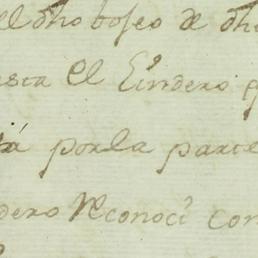 el dho boseo de dho
asta el Lindero q
rá por la parte
dero Reconoci con